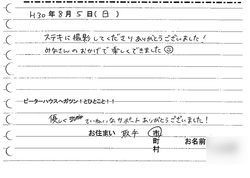 H30年8月5日(日)
ステキに撮影してくださりありがとうございました!
みなさんのおかげで楽しくできました☺
ピーターハウスへガツン!とひとこと!!
優しく ていねいなサポートありがとうございました!
お住まい 取手 市
町
村
お名前